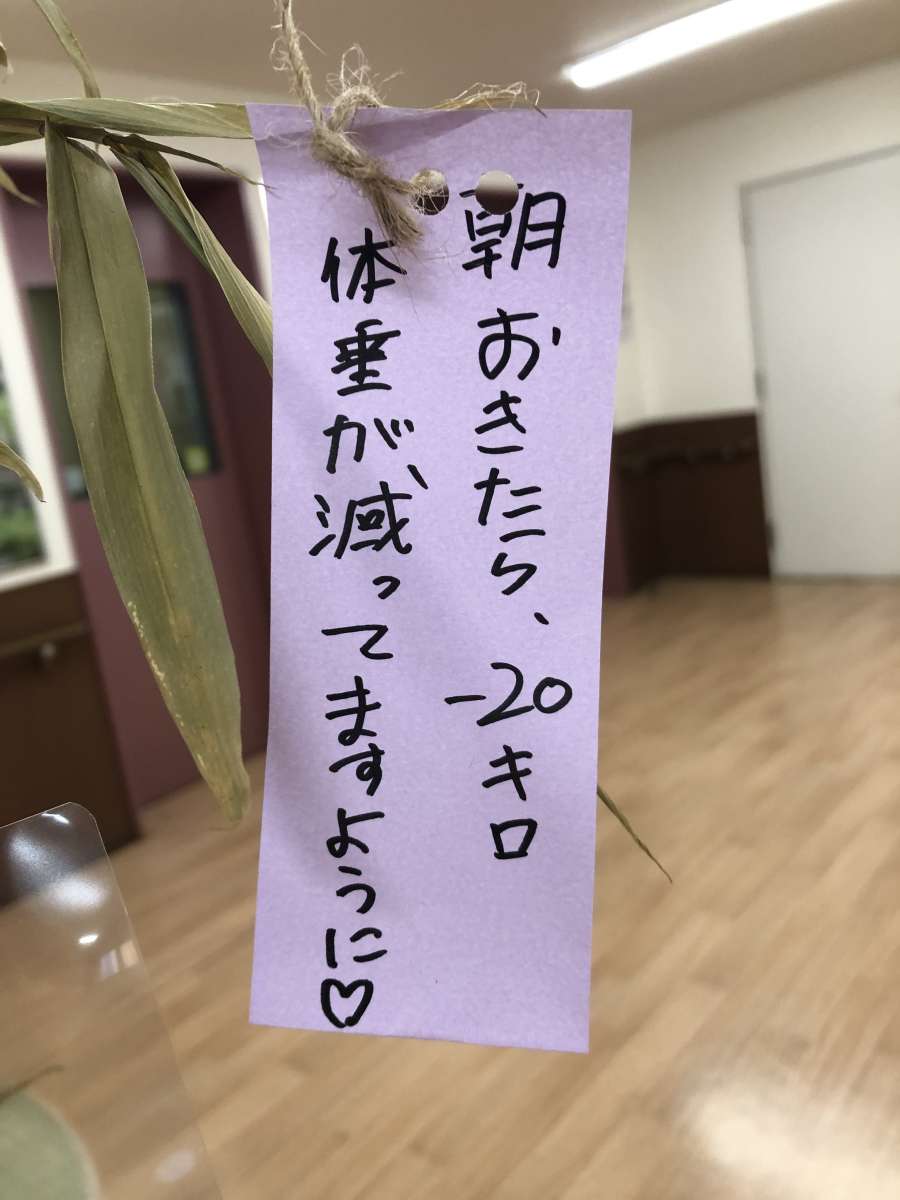 朝おきたら、-20キロ
体重が減ってますように♡